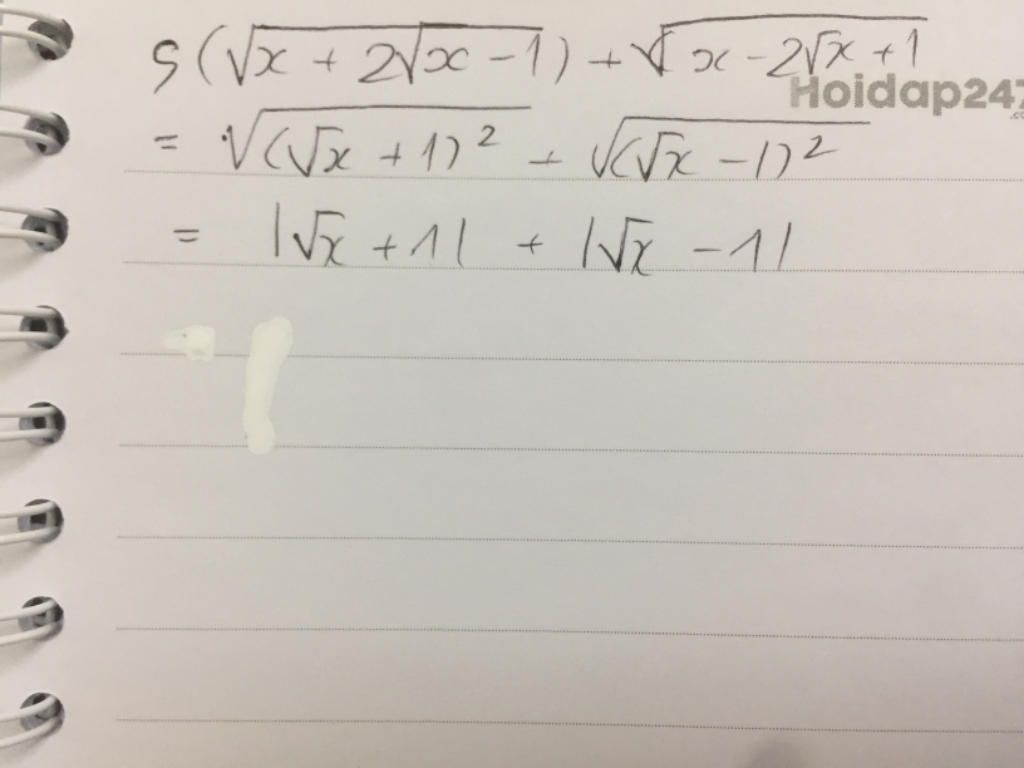 5(√x + 2√x - 1) + √x - 2√x + 1
Hoidap247
.co
= √(√x + 1)² + √(√x - 1)²
= |√x + 1| + |√x - 1|